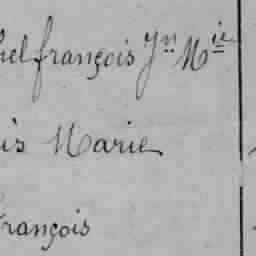 hel françois Jn Mie
is Marie
rançois